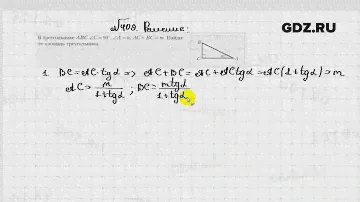 GDZ.RU
№409. Решение:
В треугольнике ABC ∠C = 90°, ∠A = α, AC + BC = m. Найдите площадь треугольника.
1. BC = AC·tgα => AC + BC = AC + ACtgα = AC(1+tgα) = m
AC = m/(1+tgα) ; BC = mtgα/(1+tgα)